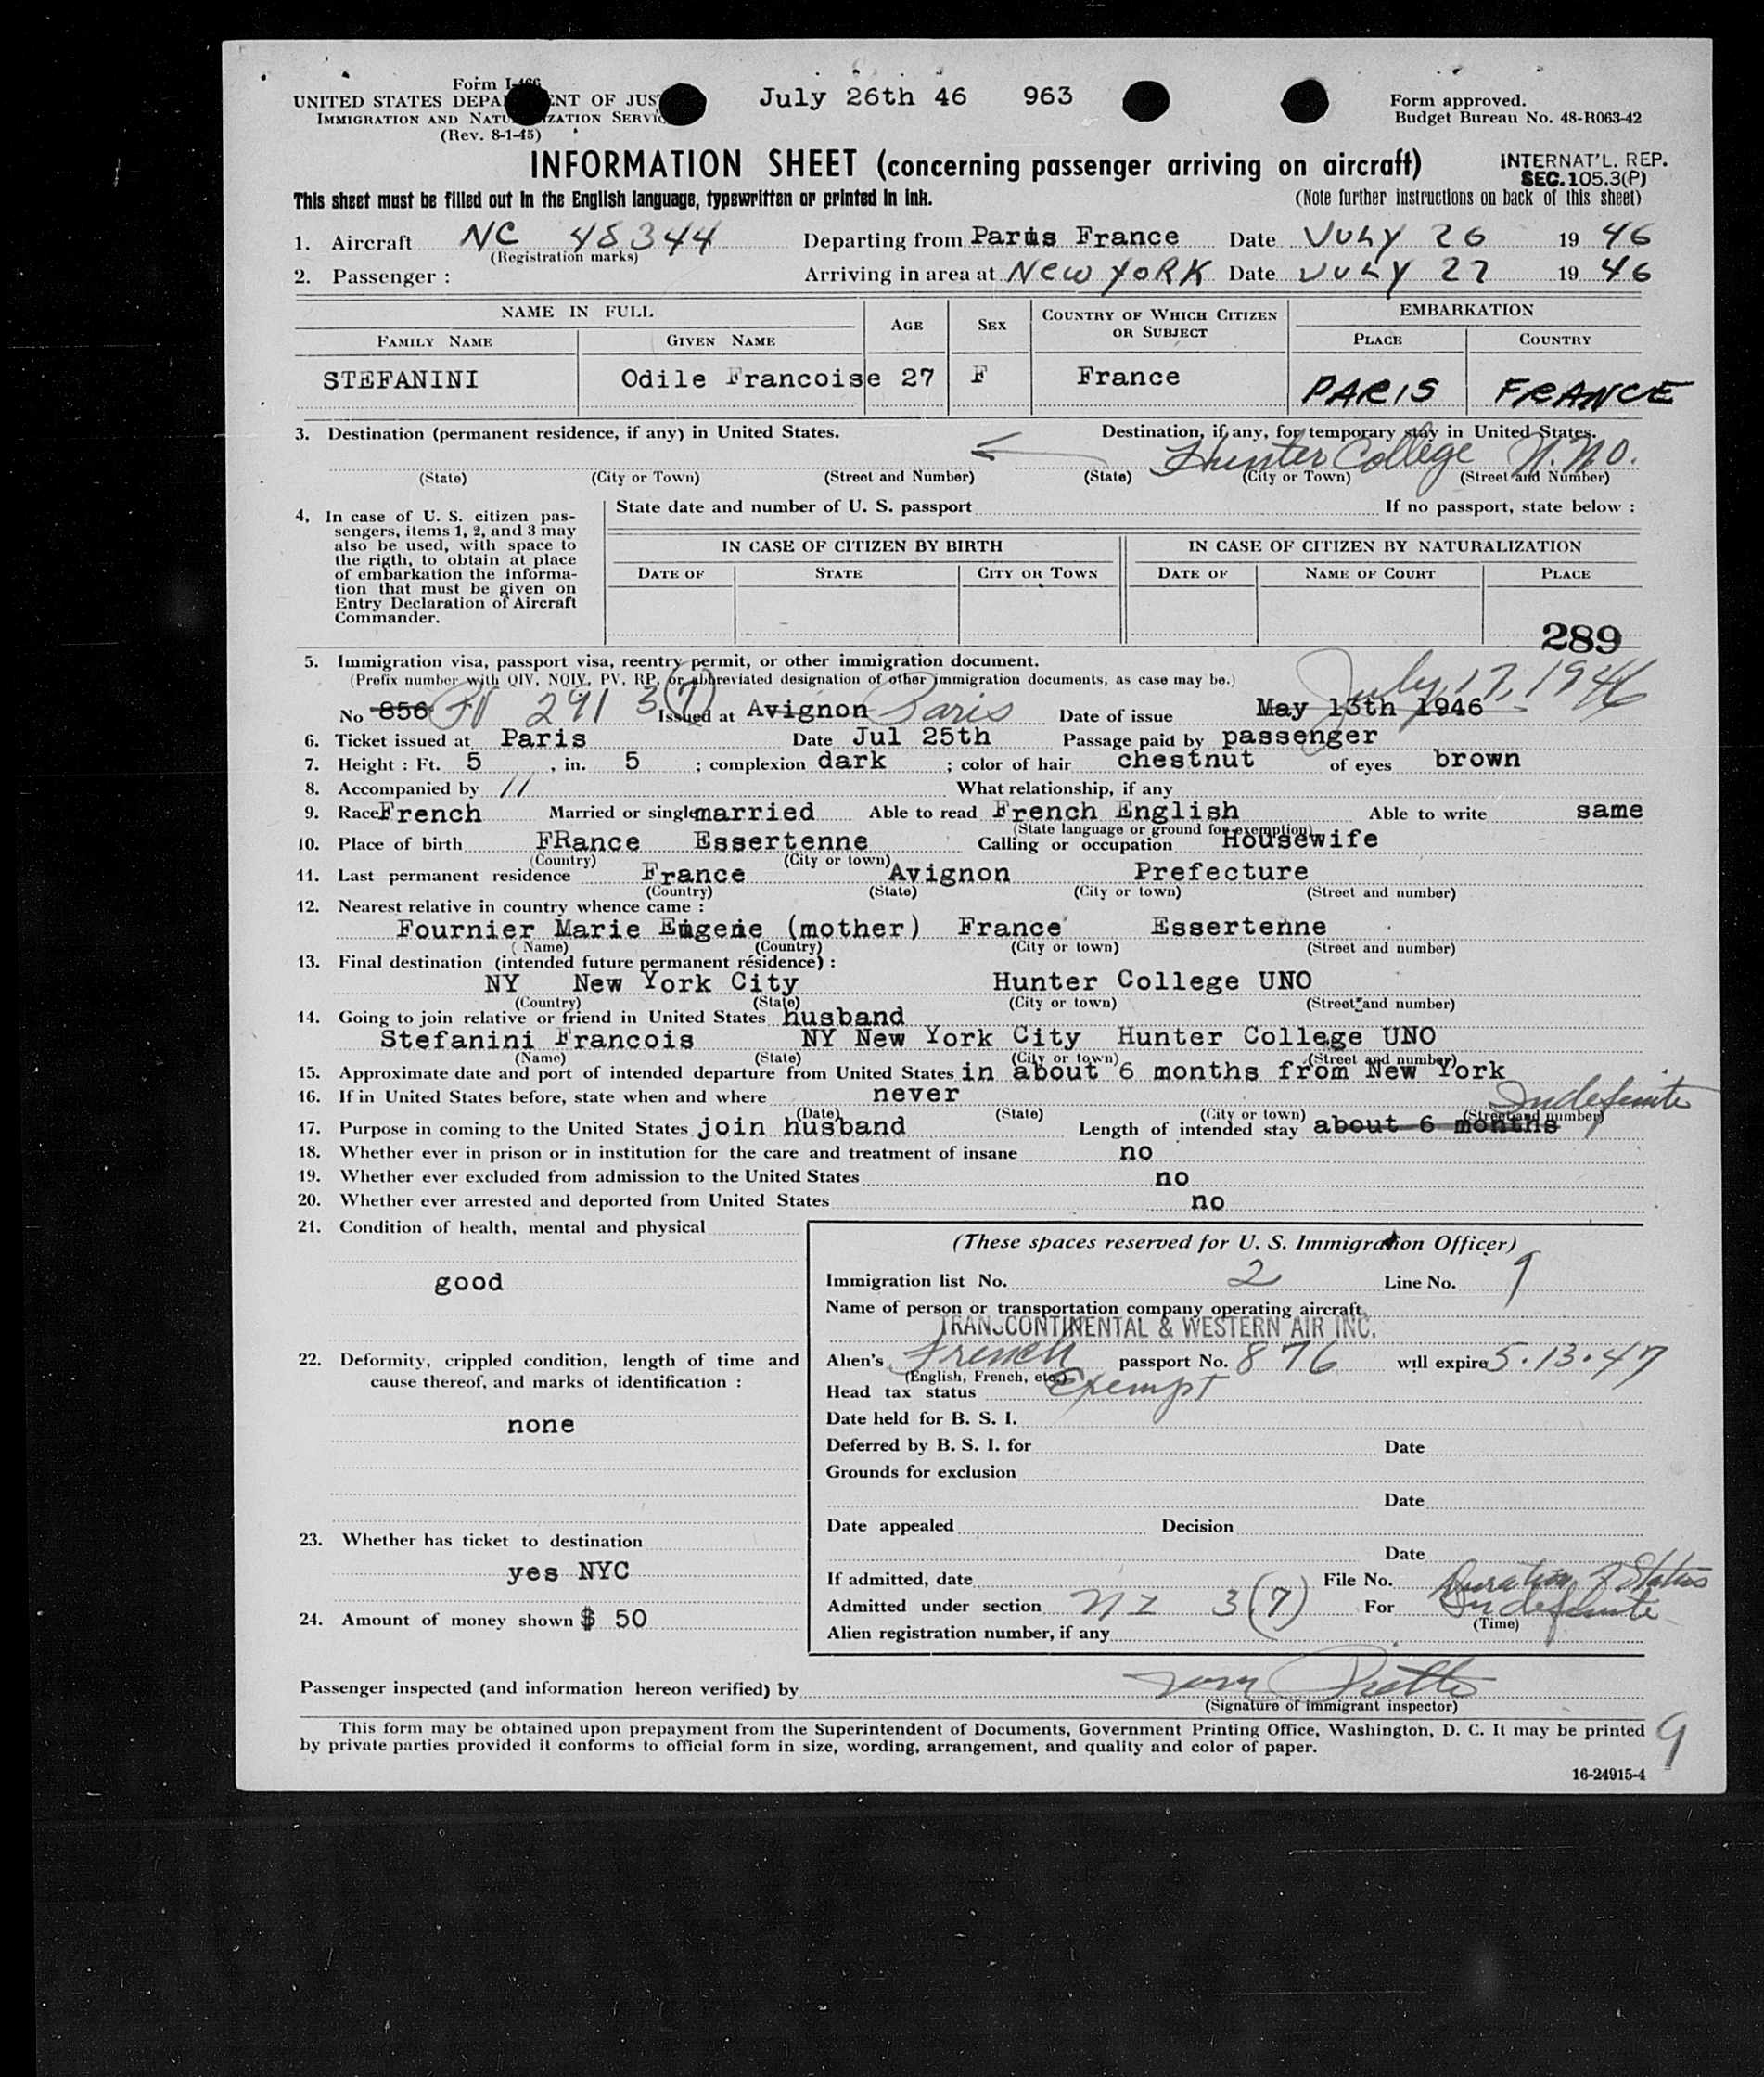 Form I-466
July 26th 46 963
Form approved.
UNITED STATES DEPARTMENT OF JUSTICE
Budget Bureau No. 48-R063-42
IMMIGRATION AND NATURALIZATION SERVICE
(Rev. 8-1-45)
INFORMATION SHEET (concerning passenger arriving on aircraft)
INTERNAT'L. REP.
SEC. 105.3(P)
This sheet must be filled out in the English language, typewritten or printed in ink. (Note further instructions on back of this sheet)
1. Aircraft NC 48344 Departing from Paris France Date JULY 26 19 46
(Registration marks)
2. Passenger : Arriving in area at NEW YORK Date JULY 27 19 46
NAME IN FULL AGE SEX COUNTRY OF WHICH CITIZEN OR SUBJECT EMBARKATION
FAMILY NAME GIVEN NAME PLACE COUNTRY
STEFANINI Odile Francoise 27 F France PARIS FRANCE
3. Destination (permanent residence, if any) in United States. Destination, if any, for temporary stay in United States.
Hunter College
(State) (City or Town) (Street and Number) (State) (City or Town) (Street and Number)
4. In case of U. S. citizen pas-
sengers, items 1, 2, and 3 may
also be used, with space to
the rigth, to obtain at place
of embarkation the informa-
tion that must be given on
Entry Declaration of Aircraft
Commander.
State date and number of U. S. passport If no passport, state below :
IN CASE OF CITIZEN BY BIRTH IN CASE OF CITIZEN BY NATURALIZATION
DATE OF STATE CITY OR TOWN DATE OF NAME OF COURT PLACE
289
5. Immigration visa, passport visa, reentry permit, or other immigration document.
(Prefix number with QIV, NQIV, PV, RP, or abbreviated designation of other immigration documents, as case may be.) July 17, 1946
No 856 PV 291 3(7) Issued at Avignon Paris Date of issue May 13th 1946
6. Ticket issued at Paris Date Jul 25th Passage paid by passenger
7. Height : Ft. 5 , in. 5 ; complexion dark ; color of hair chestnut of eyes brown
8. Accompanied by // What relationship, if any
9. Race French Married or single married Able to read French English Able to write same
(State language or ground for exemption)
10. Place of birth FRance Essertenne Calling or occupation Housewife
(Country) (City or town)
11. Last permanent residence France Avignon Prefecture
(Country) (State) (City or town) (Street and number)
12. Nearest relative in country whence came :
Fournier Marie Eugenie (mother) France Essertenne
(Name) (Country) (City or town) (Street and number)
13. Final destination (intended future permanent résidence) :
NY New York City Hunter College UNO
(Country) (State) (City or town) (Street and number)
14. Going to join relative or friend in United States husband
Stefanini Francois NY New York City Hunter College UNO
(Name) (State) (City or town) (Street and number)
15. Approximate date and port of intended departure from United States in about 6 months from New York
16. If in United States before, state when and where never
(Date) (State) (City or town) (Street and number)
Indefinite
17. Purpose in coming to the United States join husband Length of intended stay about 6 months
18. Whether ever in prison or in institution for the care and treatment of insane no
19. Whether ever excluded from admission to the United States no
20. Whether ever arrested and deported from United States no
21. Condition of health, mental and physical
good
22. Deformity, crippled condition, length of time and
cause thereof, and marks of identification :
none
23. Whether has ticket to destination
yes NYC
24. Amount of money shown $ 50
(These spaces reserved for U. S. Immigration Officer)
Immigration list No. 2 Line No. 9
Name of person or transportation company operating aircraft
TRANSCONTINENTAL & WESTERN AIR INC.
Alien's French passport No. 876 will expire 5.13.47
(English, French, etc.)
Head tax status Exempt
Date held for B. S. I.
Deferred by B. S. I. for Date
Grounds for exclusion
Date
Date appealed Decision
Date
If admitted, date File No. Duration of Status
Admitted under section 3(7) For Indefinite
(Time)
Alien registration number, if any
Passenger inspected (and information hereon verified) by
(Signature of immigrant inspector)
This form may be obtained upon prepayment from the Superintendent of Documents, Government Printing Office, Washington, D. C. It may be printed
by private parties provided it conforms to official form in size, wording, arrangement, and quality and color of paper.
9
16-24915-4